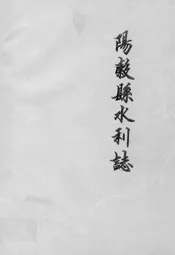 陽穀縣水利誌